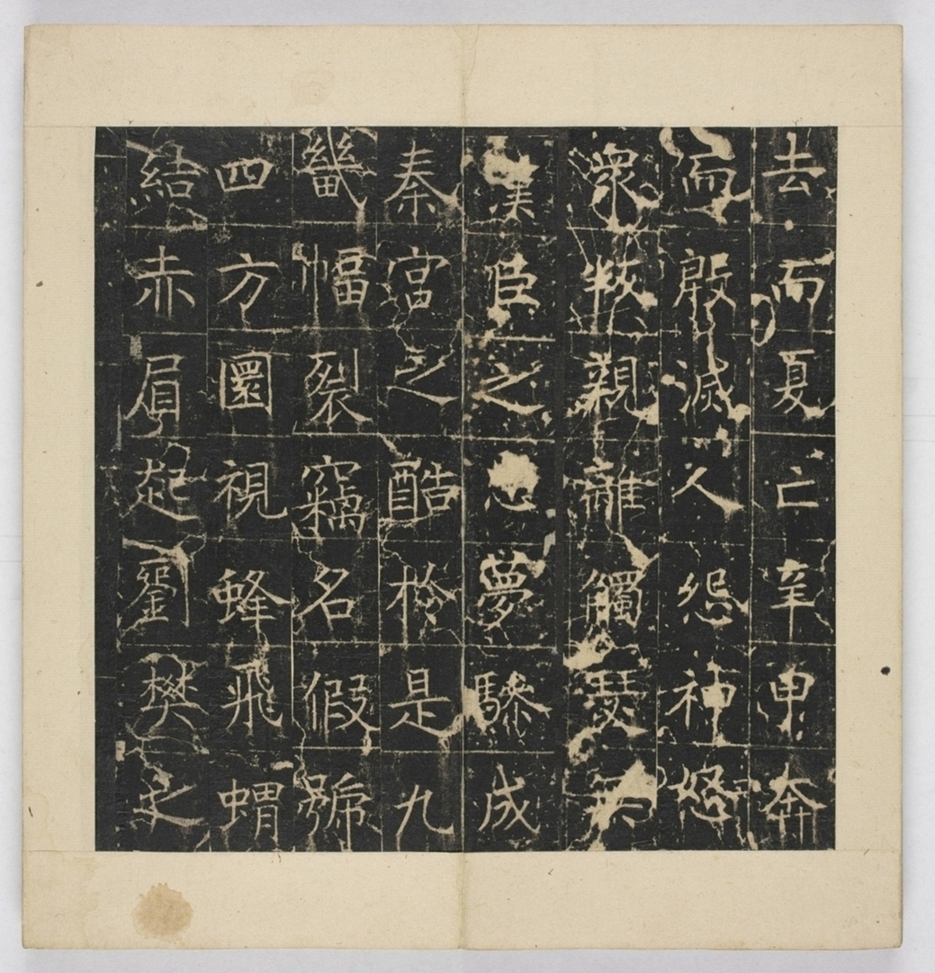 去而夏亡辛甲奔
而殷滅人怨神怒
衆叛親離觸瑟無
漢臣之夢驂成
秦宮之酷於是九
畿幅裂竊名假號
四方圜視蜂飛蝟
結赤眉起劉樊之